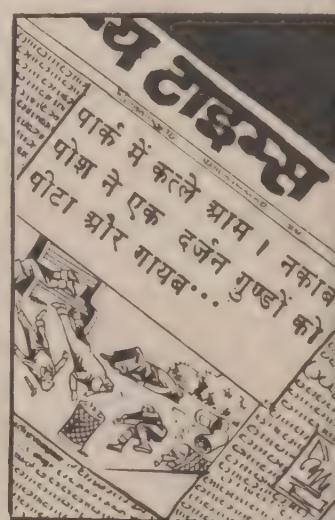 टाइम्स
पार्क में कत्ले श्राम । नकाब
पोश ने एक दर्जन गुण्डों को
पीटा श्रौर गायब...